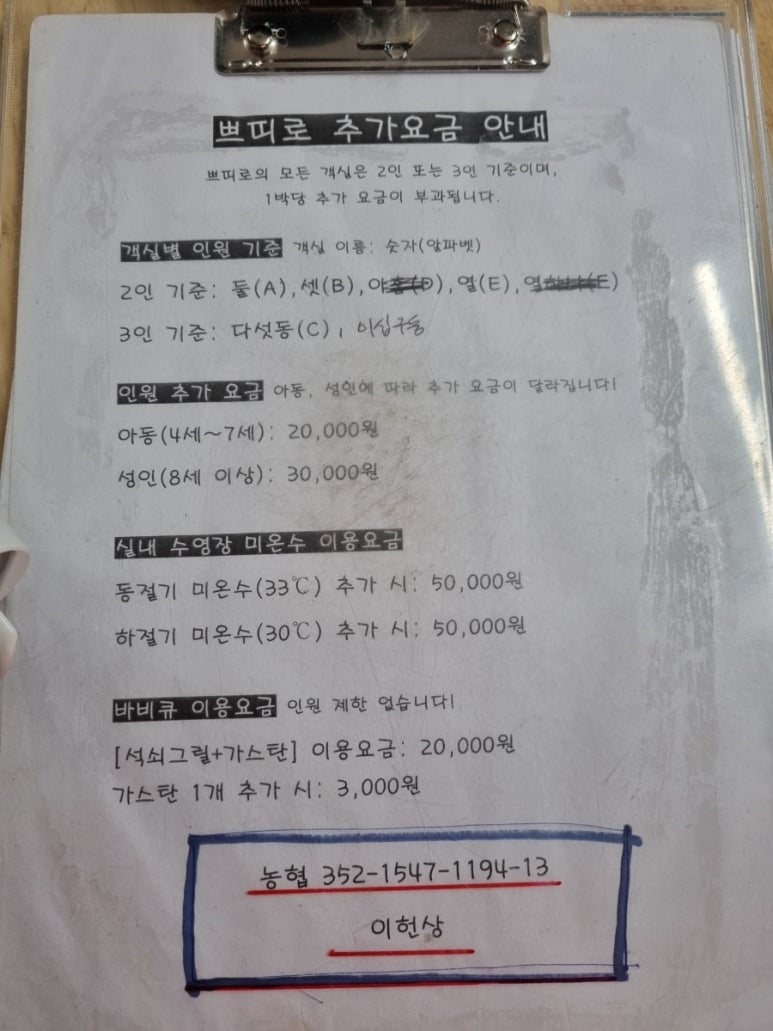 쁘띠로 추가요금 안내
쁘띠로의 모든 객실은 2인 또는 3인 기준이며,
1박당 추가 요금이 부과됩니다.
객실별 인원 기준 객실 이름: 숫자(알파벳)
2인 기준: 둘(A), 셋(B), 아홉(D), 열(E), 열
3인 기준: 다섯동(C), 이십구동
인원 추가 요금 아동, 성인에 따라 추가 요금이 달라집니다!
아동(4세~7세): 20,000원
성인(8세 이상): 30,000원
실내 수영장 미온수 이용요금
동절기 미온수(33℃) 추가 시: 50,000원
하절기 미온수(30℃) 추가 시: 50,000원
바비큐 이용요금 인원 제한 없습니다!
[석쇠그릴+가스탄] 이용요금: 20,000원
가스탄 1개 추가 시: 3,000원
농협 352-1547-1194-13
이헌상